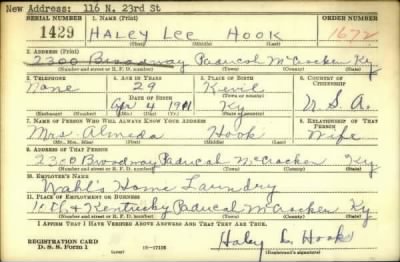 New Address: 116 N. 23rd St
SERIAL NUMBER 1. NAME (Print) ORDER NUMBER
1429 HALEY LEE HOOK 1672
(First) (Middle) (Last)
2. ADDRESS (Print)
2300 Broadway Paducah McCracken Ky
(Number and street or R. F. D. number) (Town) (County) (State)
3. TELEPHONE 4. AGE IN YEARS 5. PLACE OF BIRTH 6. COUNTRY OF CITIZENSHIP
None 29 Kevil
DATE OF BIRTH (Town or county)
Apr 4 1911 Ky U.S.A.
(Exchange) (Number) (Mo.) (Day) (Yr.) (State or country)
7. NAME OF PERSON WHO WILL ALWAYS KNOW YOUR ADDRESS 8. RELATIONSHIP OF THAT PERSON
Mrs. Almeda Hook Wife
(Mr., Mrs., Miss) (First) (Middle) (Last)
9. ADDRESS OF THAT PERSON
2300 Broadway Paducah McCracken Ky
(Number and street or R. F. D. number) (Town) (County) (State)
10. EMPLOYER'S NAME
Wahl's Home Laundry
11. PLACE OF EMPLOYMENT OR BUSINESS
10th & Kentucky Paducah McCracken Ky
(Number and street or R. F. D. number) (Town) (County) (State)
I AFFIRM THAT I HAVE VERIFIED ABOVE ANSWERS AND THAT THEY ARE TRUE.
REGISTRATION CARD
D. S. S. Form 1 16-17105
Haley L. Hook
(Registrant's signature)